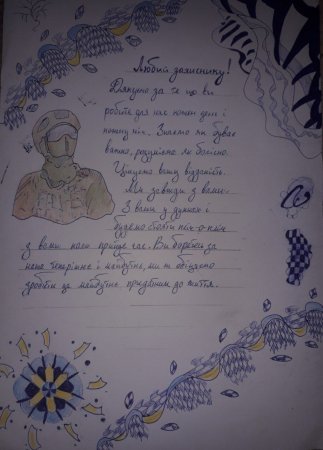 Любий захиснику!
Дякуємо за те що ви
робите для нас кожен день і
кожну ніч. Знаємо як буває
важко, розуміємо як боляче.
Цінуємо вашу відданість.
Ми завжди з вами.
З вами у думках і
будемо стояти пліч-о-пліч
з вами коли прийде час. Ви боретесь за
наше теперішнє і майбутнє, ми ж обіцяємо
зробити це майбутнє придатним до життя.